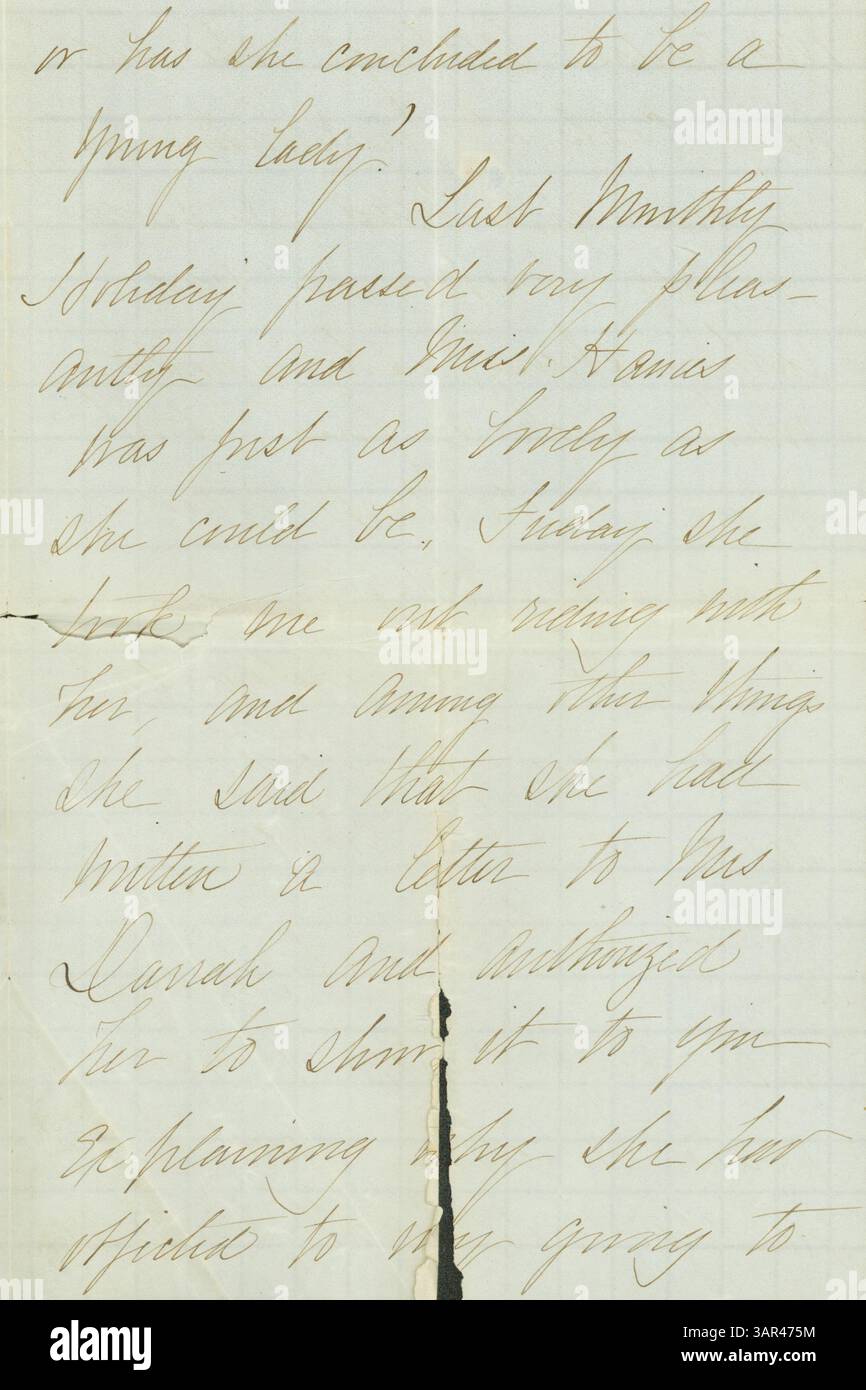 or has she concluded to be a
young lady?
Last Monthly
Holiday passed very pleas-
antly and Miss. Haines
was just as lovely as
she could be. Friday she
took me out riding with
her, and among other things
she said that she had
written a letter to Mrs
Darrah and authorized
her to show it to you
Explaining why she had
objected to my going to
alamy
Image ID: 3AR475M
www.alamy.com